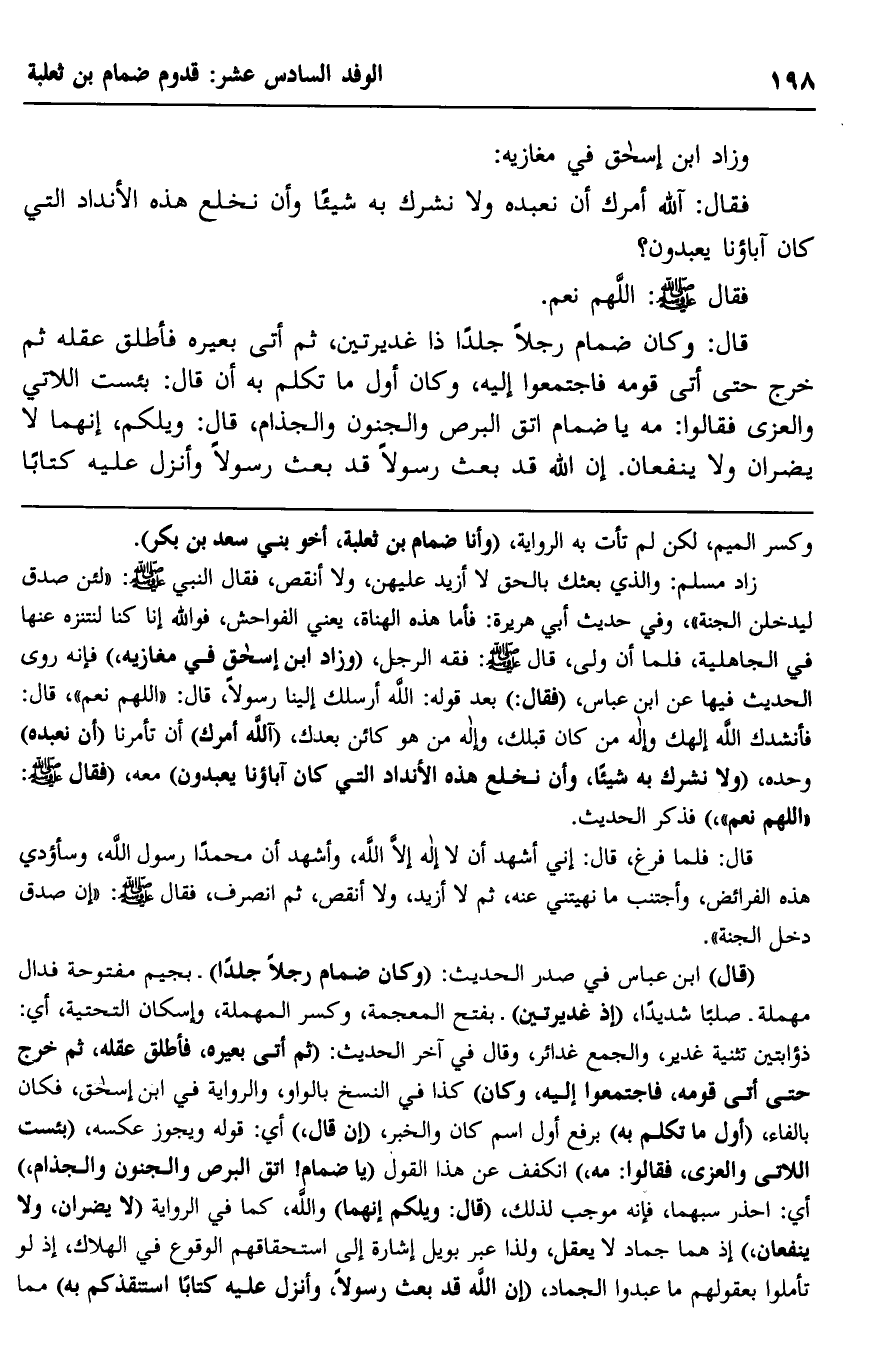 ١٩٨
الوفد السادس عشر: قدوم ضمام بن ثعلبة
وزاد ابن إسحٰق في مغازيه:
فقال: آلله أمرك أن نعبده ولا نشرك به شيئًا وأن نخلع هذه الأنداد التي
كان آباؤنا يعبدون؟
فقال ﷺ: اللَّهم نعم.
قال: وكان ضمام رجلاً جلدًا ذا غديرتين، ثم أتى بعيره فأطلق عقله ثم
خرج حتى أتى قومه فاجتمعوا إليه، وكان أول ما تكلم به أن قال: بئست اللاتي
والعزى فقالوا: مه يا ضمام اتق البرص والجنون والجذام، قال: ويلكم، إنهما لا
يضران ولا ينفعان. إن الله قد بعث رسولاً قد بعث رسولاً وأنزل عليه كتابًا
وكسر الميم، لكن لم تأت به الرواية، (وأنا ضمام بن ثعلبة، أخو بني سعد بن بكر).
زاد مسلم: والذي بعثك بالحق لا أزيد عليهن، ولا أنقص، فقال النبي ﷺ: «لئن صدق
ليدخلن الجنة»، وفي حديث أبي هريرة: فأما هذه الهناة، يعني الفواحش، فوالله إنا كنا لنتنزه عنها
في الجاهلية، فلما أن ولى، قال ﷺ: فقه الرجل، (وزاد ابن إسحٰق في مغازيه،) فإنه روى
الحديث فيها عن ابن عباس، (فقال:) بعد قوله: اللَّه أرسلك إلينا رسولاً، قال: «اللهم نعم»، قال:
فأنشدك اللَّه إلهك وإلٰه من كان قبلك، وإلٰه من هو كائن بعدك، (آللَّه أمرك) أن تأمرنا (أن نعبده)
وحده، (ولا نشرك به شيئًا، وأن نخلع هذه الأنداد التي كان آباؤنا يعبدون) معه، (فقال ﷺ:
«اللهم نعم»،) فذكر الحديث.
قال: فلما فرغ، قال: إني أشهد أن لا إلٰه إلاَّ اللَّه، وأشهد أن محمدًا رسول اللَّه، وسأؤدي
هذه الفرائض، وأجتنب ما نهيتني عنه، ثم لا أزيد، ولا أنقص، ثم انصرف، فقال ﷺ: «إن صدق
دخل الجنة».
(قال) ابن عباس في صدر الحديث: (وكان ضمام رجلاً جلدًا). بجيم مفتوحة فدال
مهملة. صلبًا شديدًا، (إذ غديرتين). بفتح المعجمة، وكسر المهملة، وإسكان التحتية، أي:
ذؤابتين تثنية غدير، والجمع غدائر، وقال في آخر الحديث: (ثم أتى بعيره، فأطلق عقله، ثم خرج
حتى أتى قومه، فاجتمعوا إليه، وكان) كذا في النسخ بالواو، والرواية في ابن إسحٰق، فكان
بالفاء، (أول ما تكلم به) برفع أول اسم كان والخبر، (إن قال،) أي: قوله ويجوز عكسه، (بئست
اللاتى والعزى، فقالوا: مه،) انكفف عن هذا القول (يا ضمام! اتق البرص والجنون والجذام،)
أي: احذر سبهما، فإنه موجب لذلك، (قال: ويلكم إنهما) واللَّه، كما في الرواية (لا يضران، ولا
ينفعان،) إذ هما جماد لا يعقل، ولذا عبر بويل إشارة إلى استحقاقهم الوقوع في الهلاك، إذ لو
تأملوا بعقولهم ما عبدوا الجماد، (إن اللَّه قد بعث رسولاً، وأنزل عليه كتابًا استنقذكم به) مما